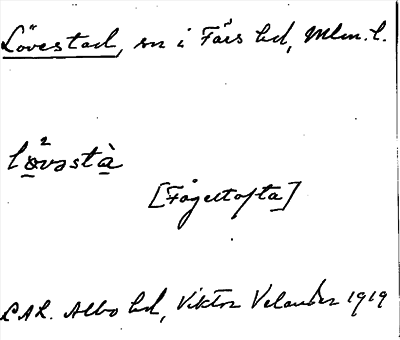 Lövestad, sn i Färs hd, Mlm. l.
lø²vəstà
[Fågeltofta]
LAL. Albo hd, Viktor Velander 1919